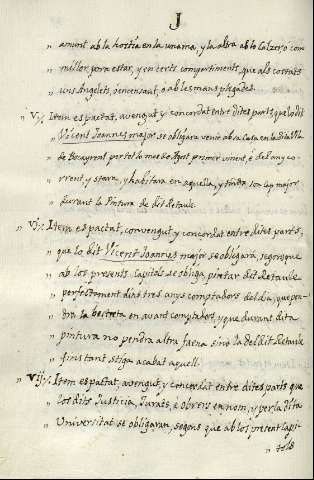 J
" amunt ab la hostia en la ma ma, y la altra ab lo Calzer o com
" millor pora estar, y en certs compartiments, que als costats
" uns Angelets, o encensant, o ab les mans plegades.
" V// Item es pactat, avengut y concordat entre dites parts, que lo dit
" Vicent Joannes major se obligara venir ab sa Casa en la dita Vila
" de Bocayrent per tot lo mes de Agost primer vinent, e del any co-
" rrent, y stara, y habitara en aquella, y tindra son cap major
" durant la Pintura de dit Retaule.
" Vj// Item es pactat, convengut y concordat entre dites parts,
" que lo dit Vicent Joannes major se obligara, segons que
" ab los presents Capitols se obliga pintar dit Retaule
" perfectament dins tres anys comptadors del dia, que pen-
" dra la bestreta en avant comptadors, y que durant dita
" pintura no pendra altra faena sino la del dit Retaule
" fins tant stiga acabat aquell.
" Vij// Item es pactat, avengut, y concordat entre dites parts que
" los dits Justicia, Jurats, e obrers en nom, y per la dita
" Universitat se obligaran, segons que ab los present Capi-
" tols